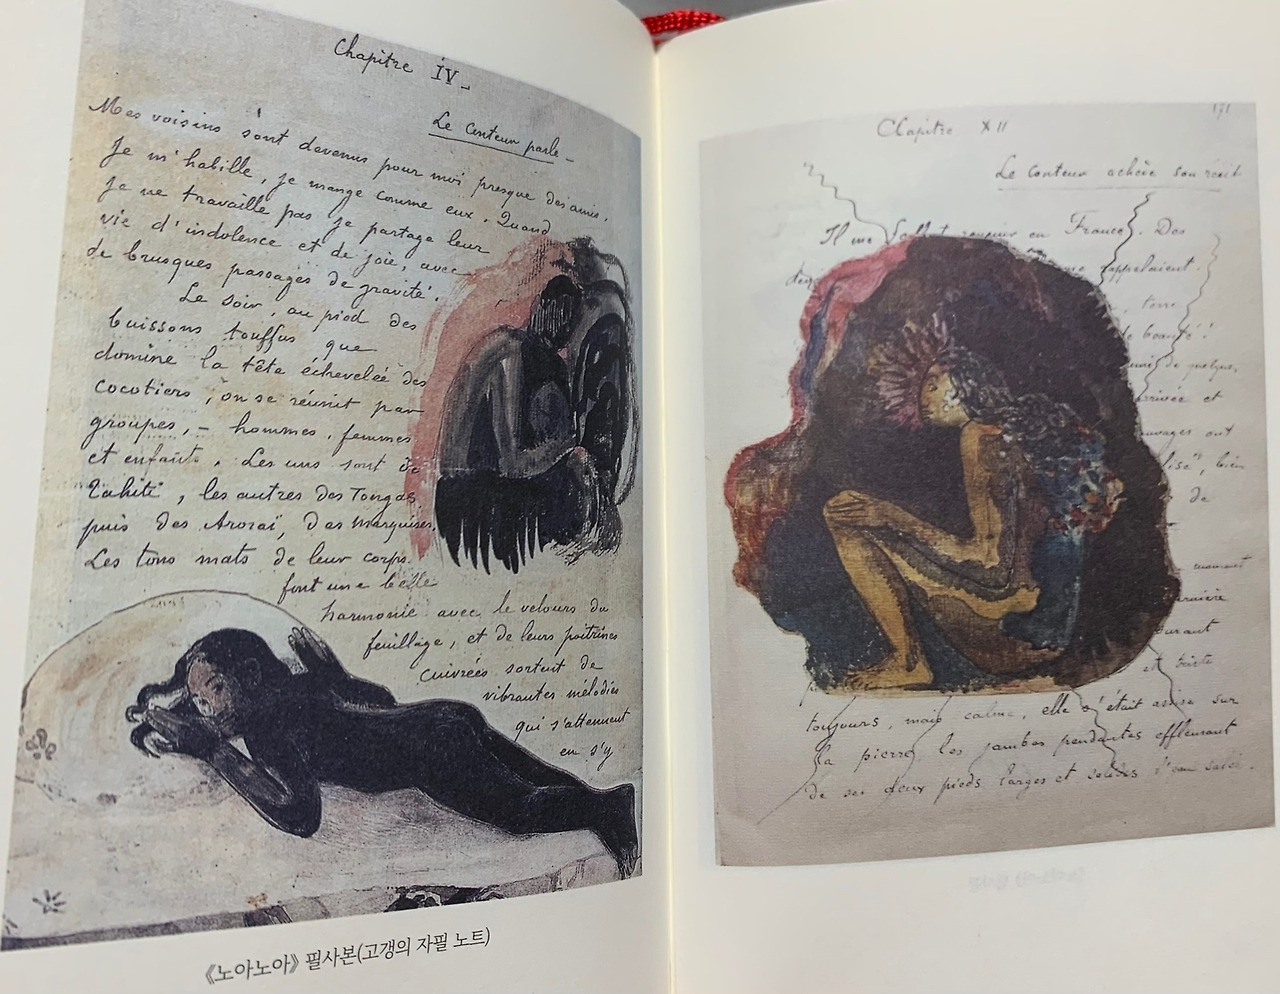 Chapitre IV_
Le Conteur parle_
Mes voisins sont devenus pour moi presque des amis.
Je m'habille, je mange comme eux. Quand
Je ne travaille pas je partage leur
vie d'indolence et de joie, avec
de brusques passages de gravité.
Le soir, au pied des
buissons touffus que
domine la tête échevelée des
cocotiers, on se réunit par
groupes, – hommes, femmes
et enfants. Les uns sont de
Tahiti, les autres des Tongas
puis des Aroraï, des Marquises.
Les tons mats de leur corps
font une belle
harmonie avec le velours du
feuillage, et de leurs poitrines
cuivrées sortent de
vibrantes mélodies
qui s'atténuent
en s'y
《노아노아》 필사본(고갱의 자필 노트)
171
Chapitre XII
Le conteur achève son récit
Il me fallut revenir en France. Des
appelaient
terre
de beauté!
de quelques
arrivée et
ont
bien
de
durant
et triste
toujours, mais calme, elle s'était assise sur
la pierre, les jambes pendantes effleurant
de ses deux pieds larges et solides l'eau salée.